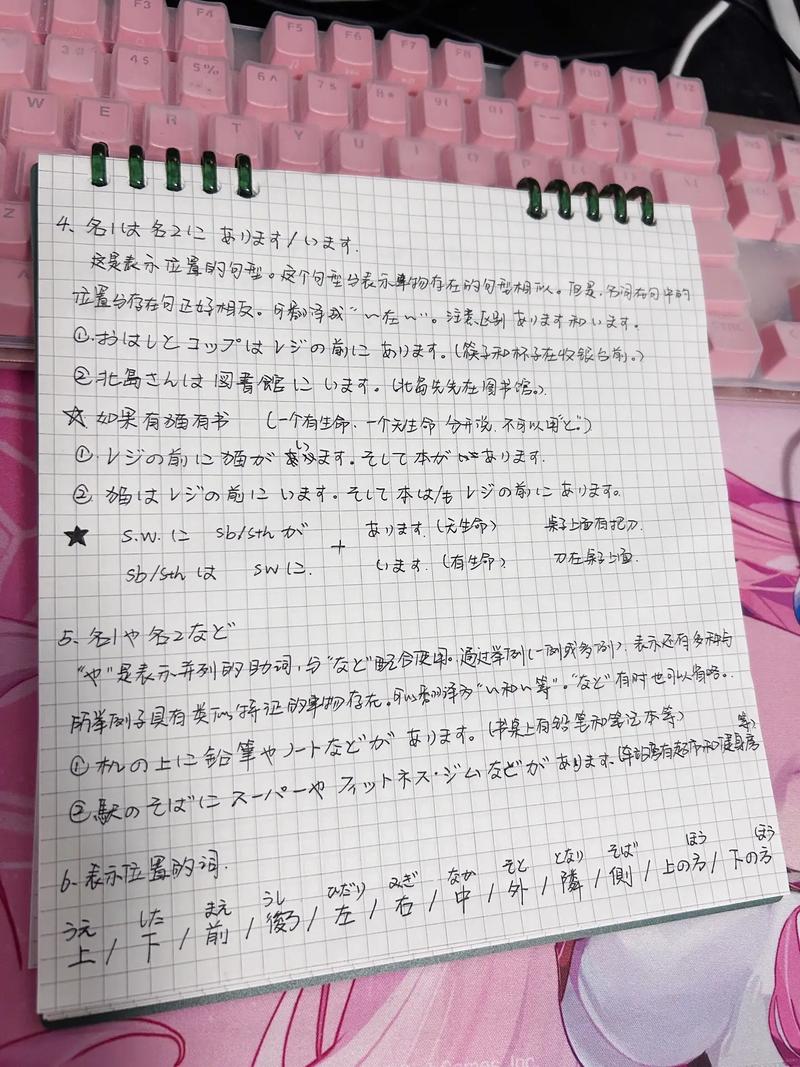 F3 F4 F5 F6 F7 F8 F9 F10 F11 F12
3# 4$ 5% 6^ 7& 8* 9( 0)
W E R T Y U I O P
Z
4、名1は 名2に あります/います.
这是表示位置的句型。这个句型与表示事物存在的句型相似。但是,名词在句中的
位置与存在句正好相反。可翻译成“~在~”。注意区别 あります和います.
①.おはしと コップは レジの前に あります。(筷子和杯子在收银台前。)
② 北島さんは 図書館に います。(北岛先生在图书馆。)
☆ 如果有猫有书 (一个有生命、一个无生命 分开说,不可以用“と”)
① レジの前に 猫が います。そして本が あります.
② 猫は レジの前に います。そして本は/も レジの前に あります。
★ s.w. に sb/sth が + あります.(无生命) 桌子上面有把刀.
sb/sth は sw に. います.(有生命) 刀在桌子上面.
5、名1や 名2など
“や”是表示并列的助词,与“など”配合使用。通过举例(一例或多例),表示还有多种与
所举例子具有类似特征的事物存在。可以翻译为“~和~等”。“など”有时也可以省略。
① 机の上に 鉛筆や ノートなどが あります。(书桌上有铅笔和笔记本等)
② 駅のそばに スーパーや フィットネス・ジムなどが あります.(车站旁有超市和健身房等)
6、表示位置的词.
うえ した まえ うし ひだり みぎ なか そと となり そば ほう ほう
上 / 下 / 前 / 後ろ / 左 / 右 / 中 / 外 / 隣 / 側 / 上の方 / 下の方
Games Inc